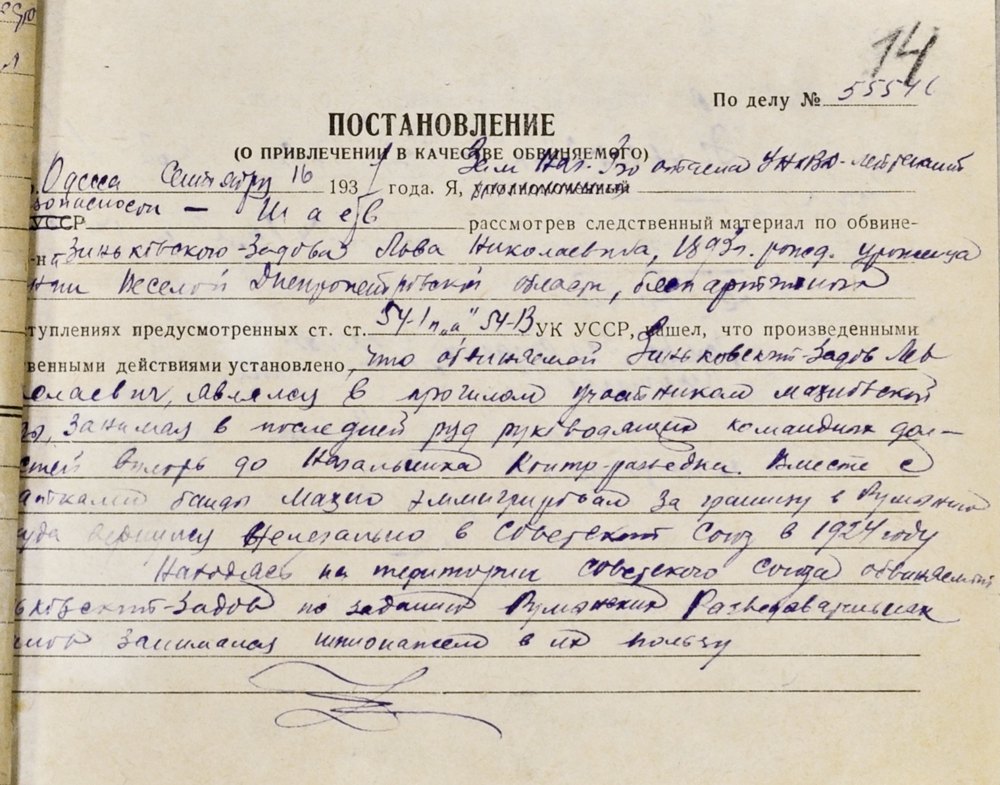 14
По делу № 5554
ПОСТАНОВЛЕНИЕ
(О ПРИВЛЕЧЕНИИ В КАЧЕСТВЕ ОБВИНЯЕМОГО)
Одесса Сентября 16 1937 года. Я, уполномоченный Зам Нач. 3го отдела УНКВД - лейтенант
зопасности — Шаев
УССР рассмотрев следственный материал по обвине-
Зиньковского-Задова Льва Николаевича, 1893 г. рожд. уроженца
Веселой Днепропетровской области, беспартийного
ступлениях предусмотренных ст. ст. 54-1 п. „а" 54-13 УК УССР, нашел, что произведенными
венными действиями установлено, что обвиняемый Зиньковский-Задов Лев
олаевич, являлся в прошлом участником махновской
занимая в последней ряд руководящих командных дол-
стей вплоть до Начальника Контр-разведки. Вместе с
банды Махно эммигрировал за границу в Румынию
куда вернулся нелегально в Советский Союз в 1924 году
Находясь на територии Советского Союза обвиняемый
ньковский-Задов по заданию Румынских Разведовательных
занимался шпионажем в их пользу